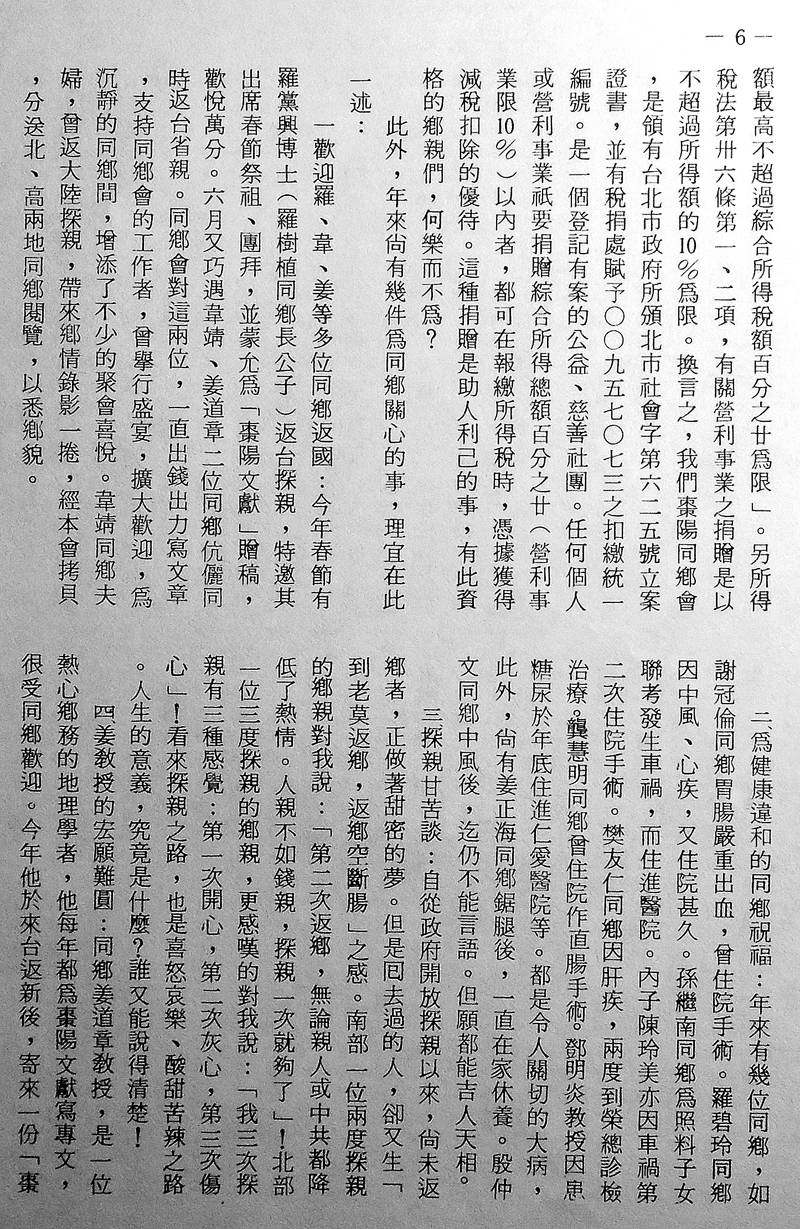 — 6 —
額最高不超過綜合所得稅額百分之廿爲限」。另所得
稅法第卅六條第一、二項，有關營利事業之捐贈是以
不超過所得額的10％爲限。換言之，我們棗陽同鄉會
，是領有台北市政府所頒北市社會字第六二五號立案
證書，並有稅捐處賦予〇〇九五七〇七三之扣繳統一
編號。是一個登記有案的公益、慈善社團。任何個人
或營利事業祇要捐贈綜合所得總額百分之廿（營利事
業限10％）以內者，都可在報繳所得稅時，憑據獲得
減稅扣除的優待。這種捐贈是助人利己的事，有此資
格的鄉親們，何樂而不爲？
此外，年來尙有幾件爲同鄉關心的事，理宜在此
一述：
一歡迎羅、韋、姜等多位同鄉返國：今年春節有
羅黨興博士（羅樹植同鄉長公子）返台探親，特邀其
出席春節祭祖、團拜，並蒙允爲「棗陽文獻」贈稿，
歡悅萬分。六月又巧遇韋靖、姜道章二位同鄉伉儷同
時返台省親。同鄉會對這兩位，一直出錢出力寫文章
，支持同鄉會的工作者，曾舉行盛宴，擴大歡迎，爲
沉靜的同鄉間，增添了不少的聚會喜悅。韋靖同鄉夫
婦，曾返大陸探親，帶來鄉情錄影一捲，經本會拷貝
，分送北、高兩地同鄉閱覽，以悉鄉貌。
二、爲健康違和的同鄉祝福：年來有幾位同鄉，如
謝冠倫同鄉胃腸嚴重出血，曾住院手術。羅碧玲同鄉
因中風、心疾，又住院甚久。孫繼南同鄉爲照料子女
聯考發生車禍，而住進醫院。內子陳玲美亦因車禍第
二次住院手術。樊友仁同鄉因肝疾，兩度到榮總診檢
治療。龔慧明同鄉曾住院作直腸手術。鄧明炎教授因患
糖尿於年底住進仁愛醫院等。都是令人關切的大病，
此外，尙有姜正海同鄉鋸腿後，一直在家休養。殷仲
文同鄉中風後，迄仍不能言語。但願都能吉人天相。
三探親甘苦談：自從政府開放探親以來，尙未返
鄉者，正做著甜密的夢。但是回去過的人，卻又生「
到老莫返鄉，返鄉空斷腸」之感。南部一位兩度探親
的鄉親對我說：「第二次返鄉，無論親人或中共都降
低了熱情。人親不如錢親，探親一次就夠了」！北部
一位三度探親的鄉親，更感嘆的對我說：「我三次探
親有三種感覺：第一次開心，第二次灰心，第三次傷
心」！看來探親之路，也是喜怒哀樂、酸甜苦辣之路
。人生的意義，究竟是什麼？誰又能說得清楚！
四姜教授的宏願難圓：同鄉姜道章教授，是一位
熱心鄉務的地理學者，他每年都爲棗陽文獻寫專文，
很受同鄉歡迎。今年他於來台返新後，寄來一份「棗